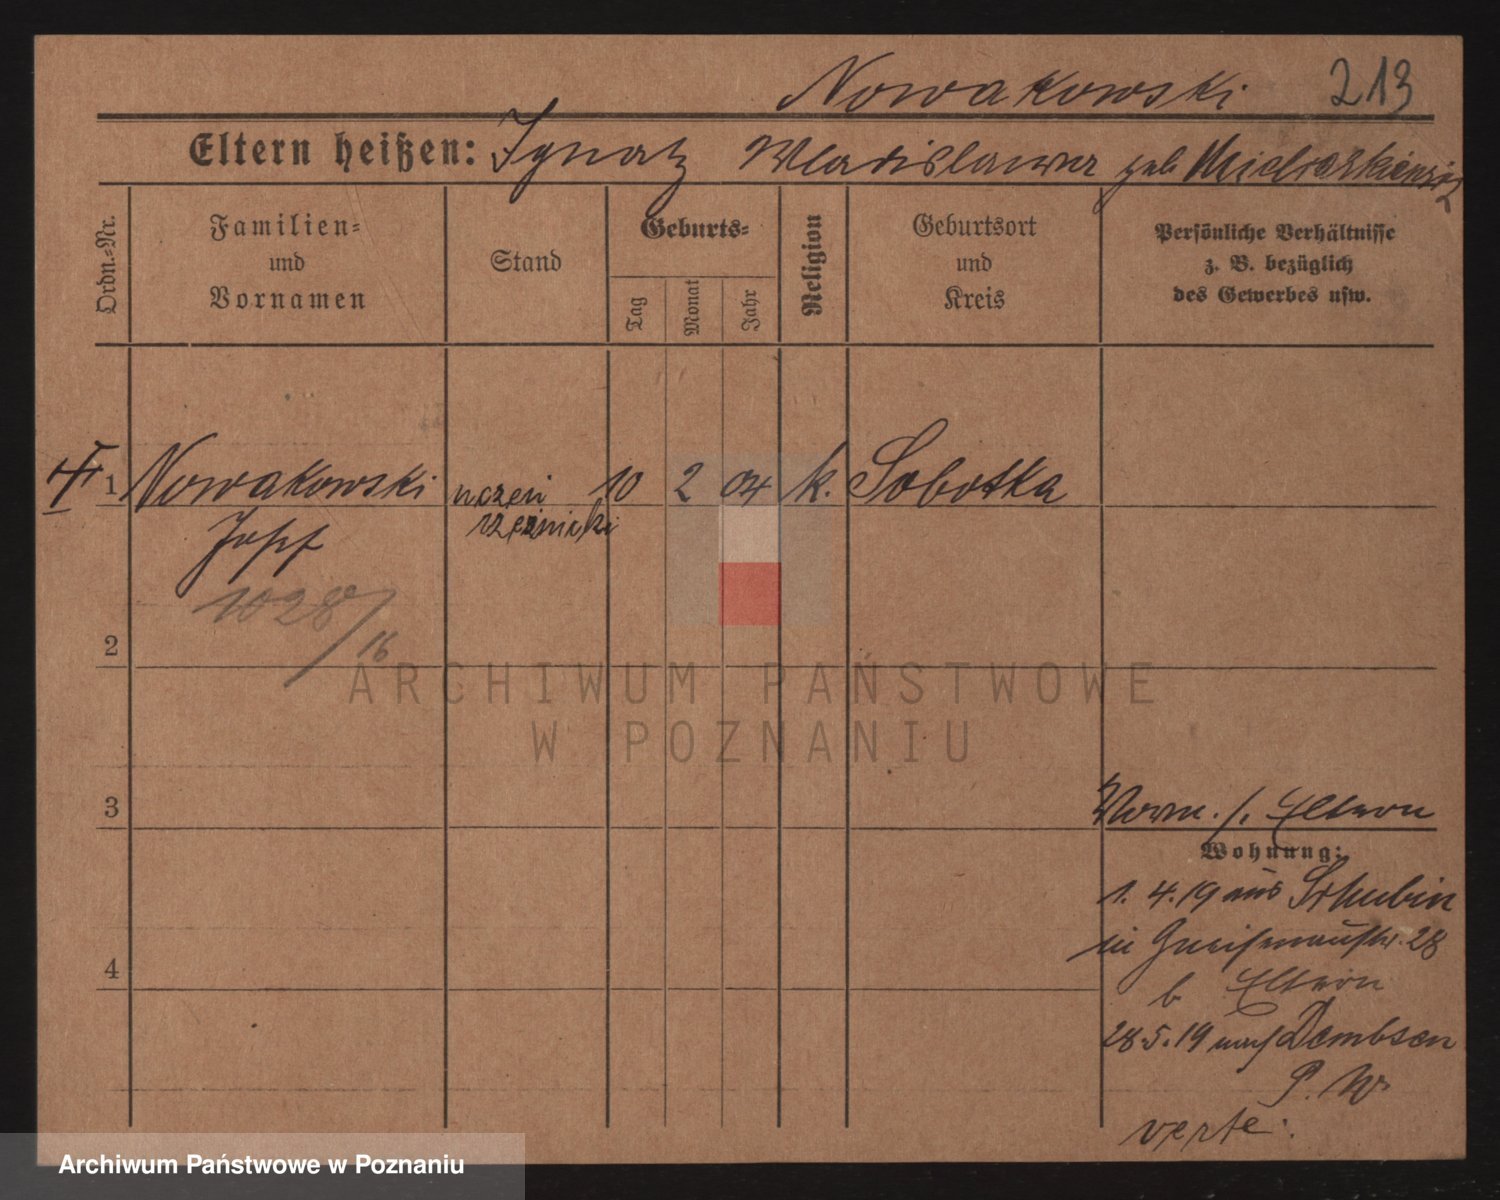 Nowakowski 213
Eltern heißen: Ignatz Wladislawa geb
Ordn.-Nr.
Familien=
und
Vornamen
Stand
Geburts=
Tag
Monat
Jahr
Religion
Geburtsort
und
Kreis
Persönliche Verhältnisse
z. B. bezüglich
des Gewerbes usw.
1 Nowakowski uczeń 10 2 04 k. Sobotka
Josef rzeźnicki
1028/16
2
3
4
Vorm. s. Eltern
Wohnung:
1. 4. 19 aus Schubin
in Gneisenaustr. 28
b Eltern
28.5.19 nach Dembsen
P. W.
verte.
ARCHIWUM PAŃSTWOWE
W POZNANIU
Archiwum Państwowe w Poznaniu